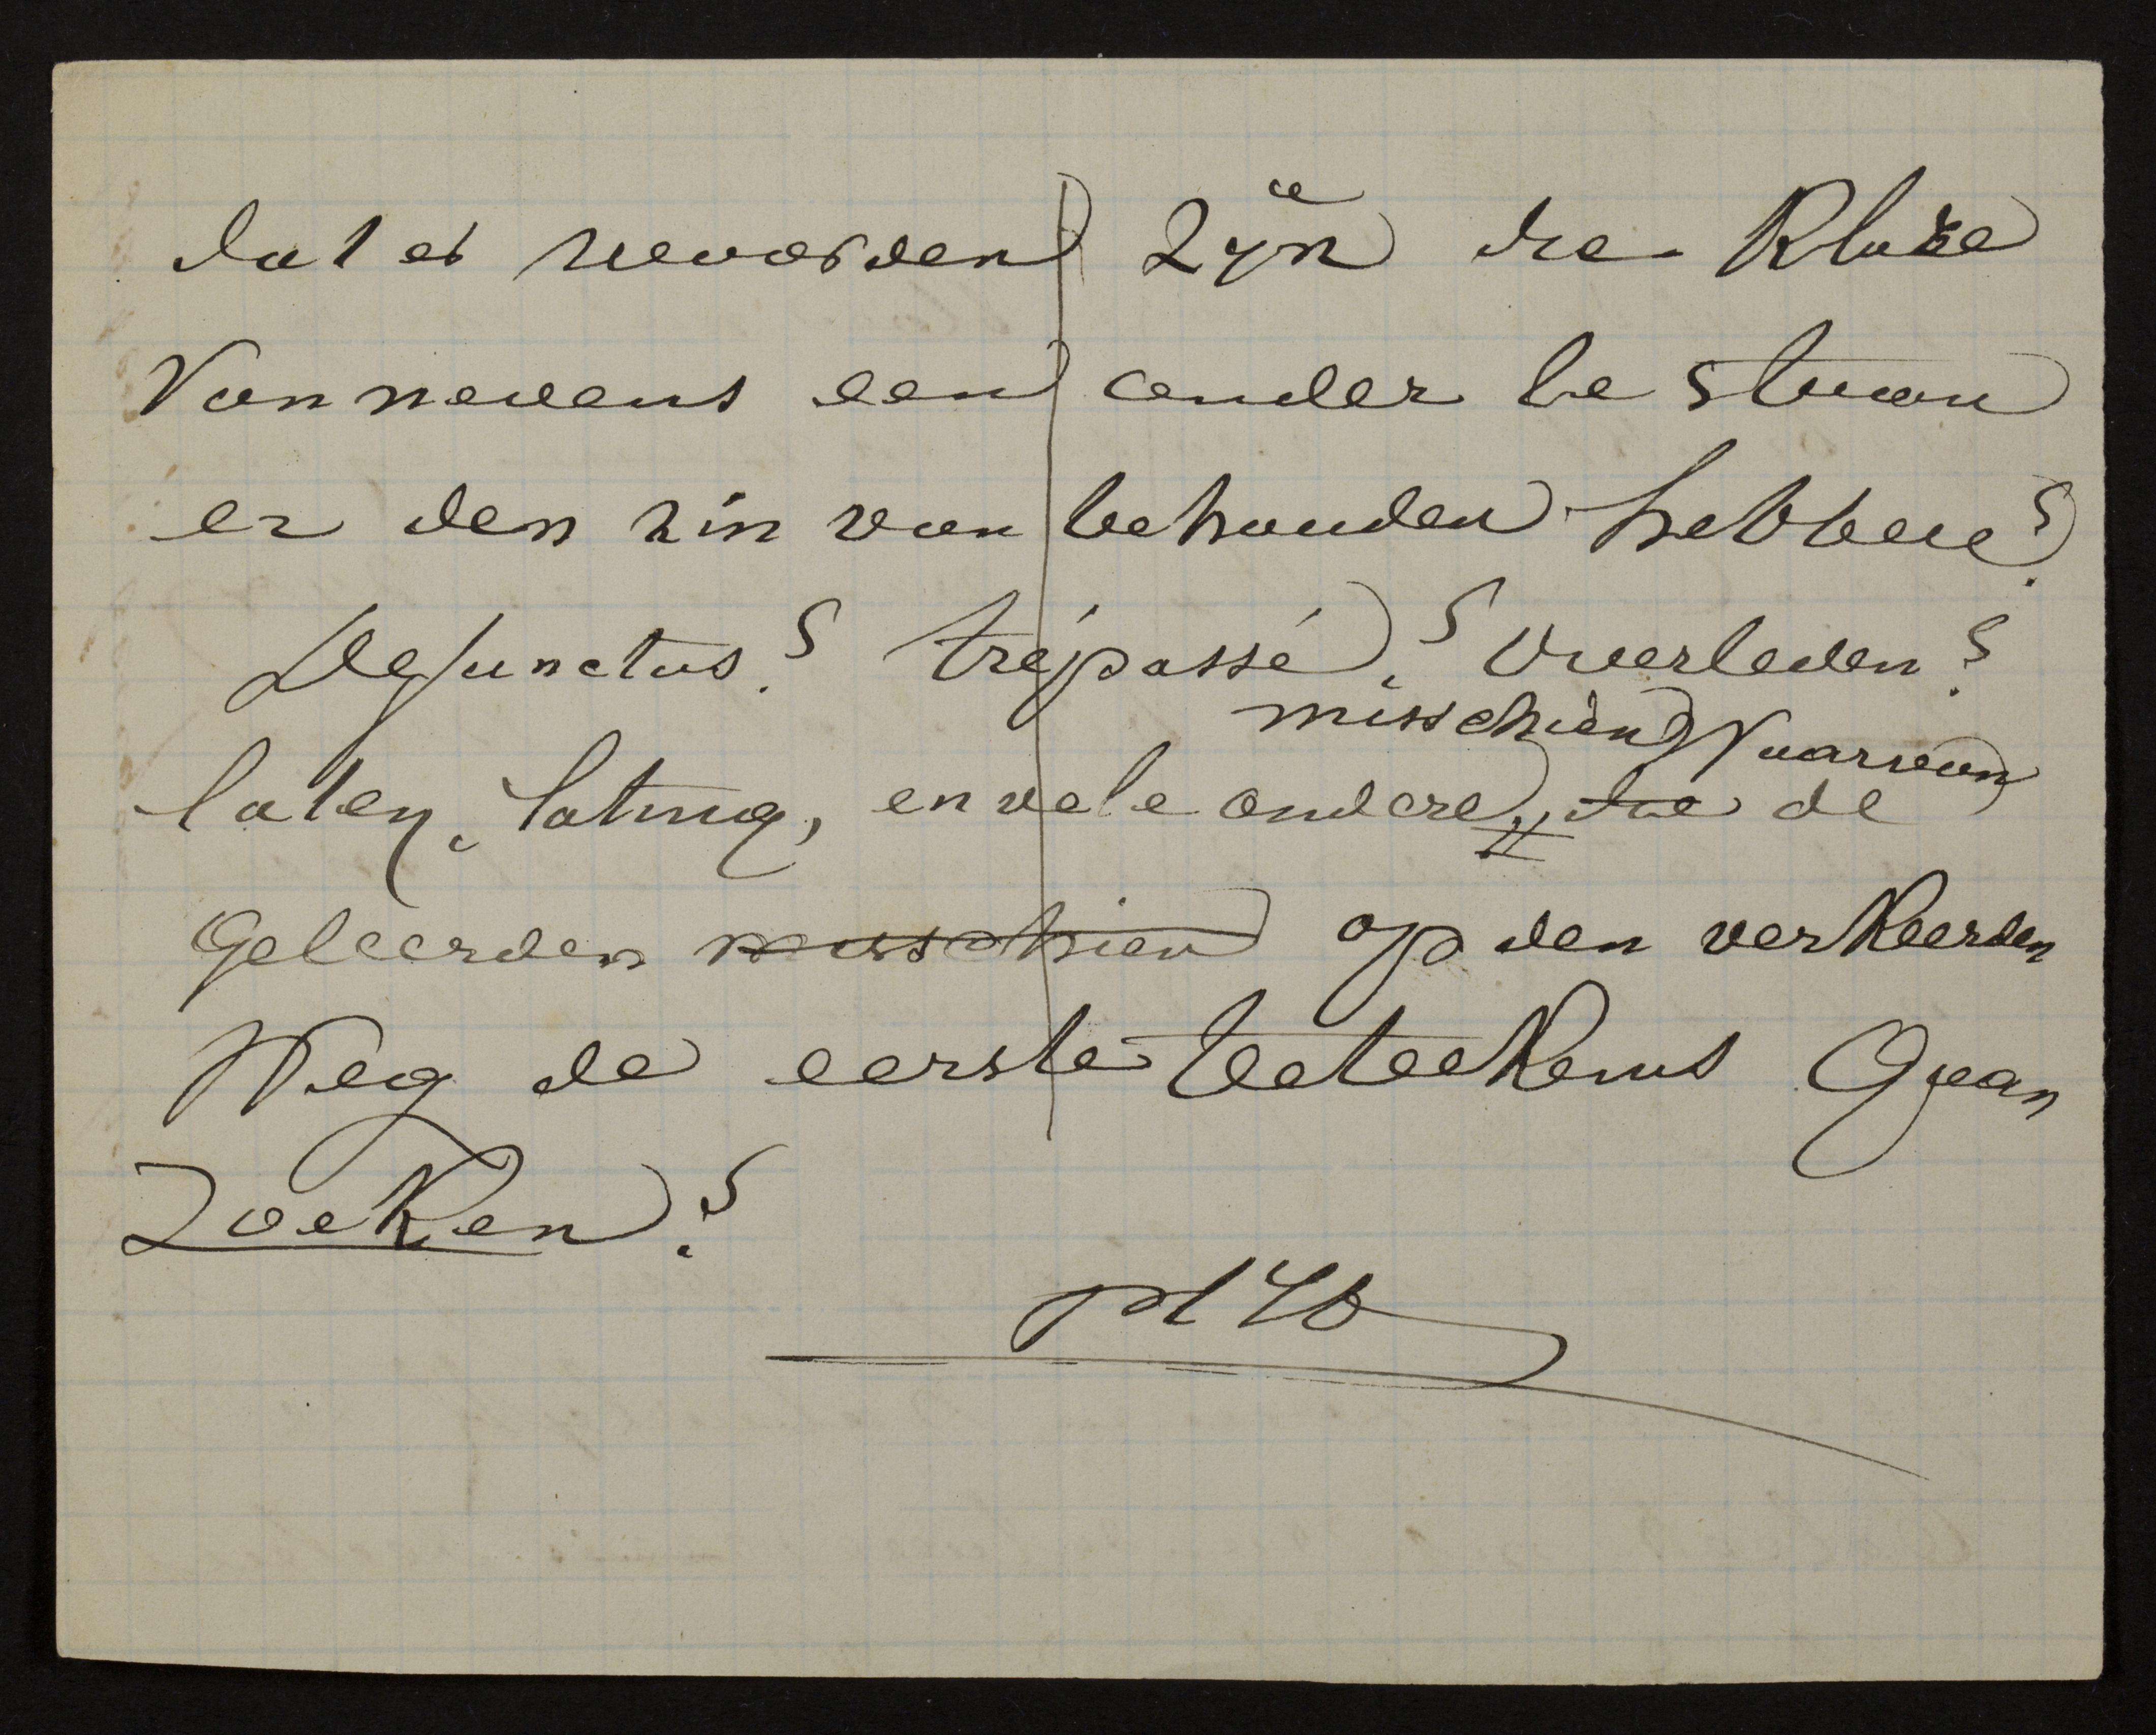 dat er woorden zyn die klare
Van nevens een ander te staan
er den zin van behouden hebben?
Defunctus? trépassé? Overleden?
misschien Waarvan
laten, lating, en vele andere, die de
Geleerden misschien op den verkeerden
Weg de eerste beteekenis Gaan
Zoeken?